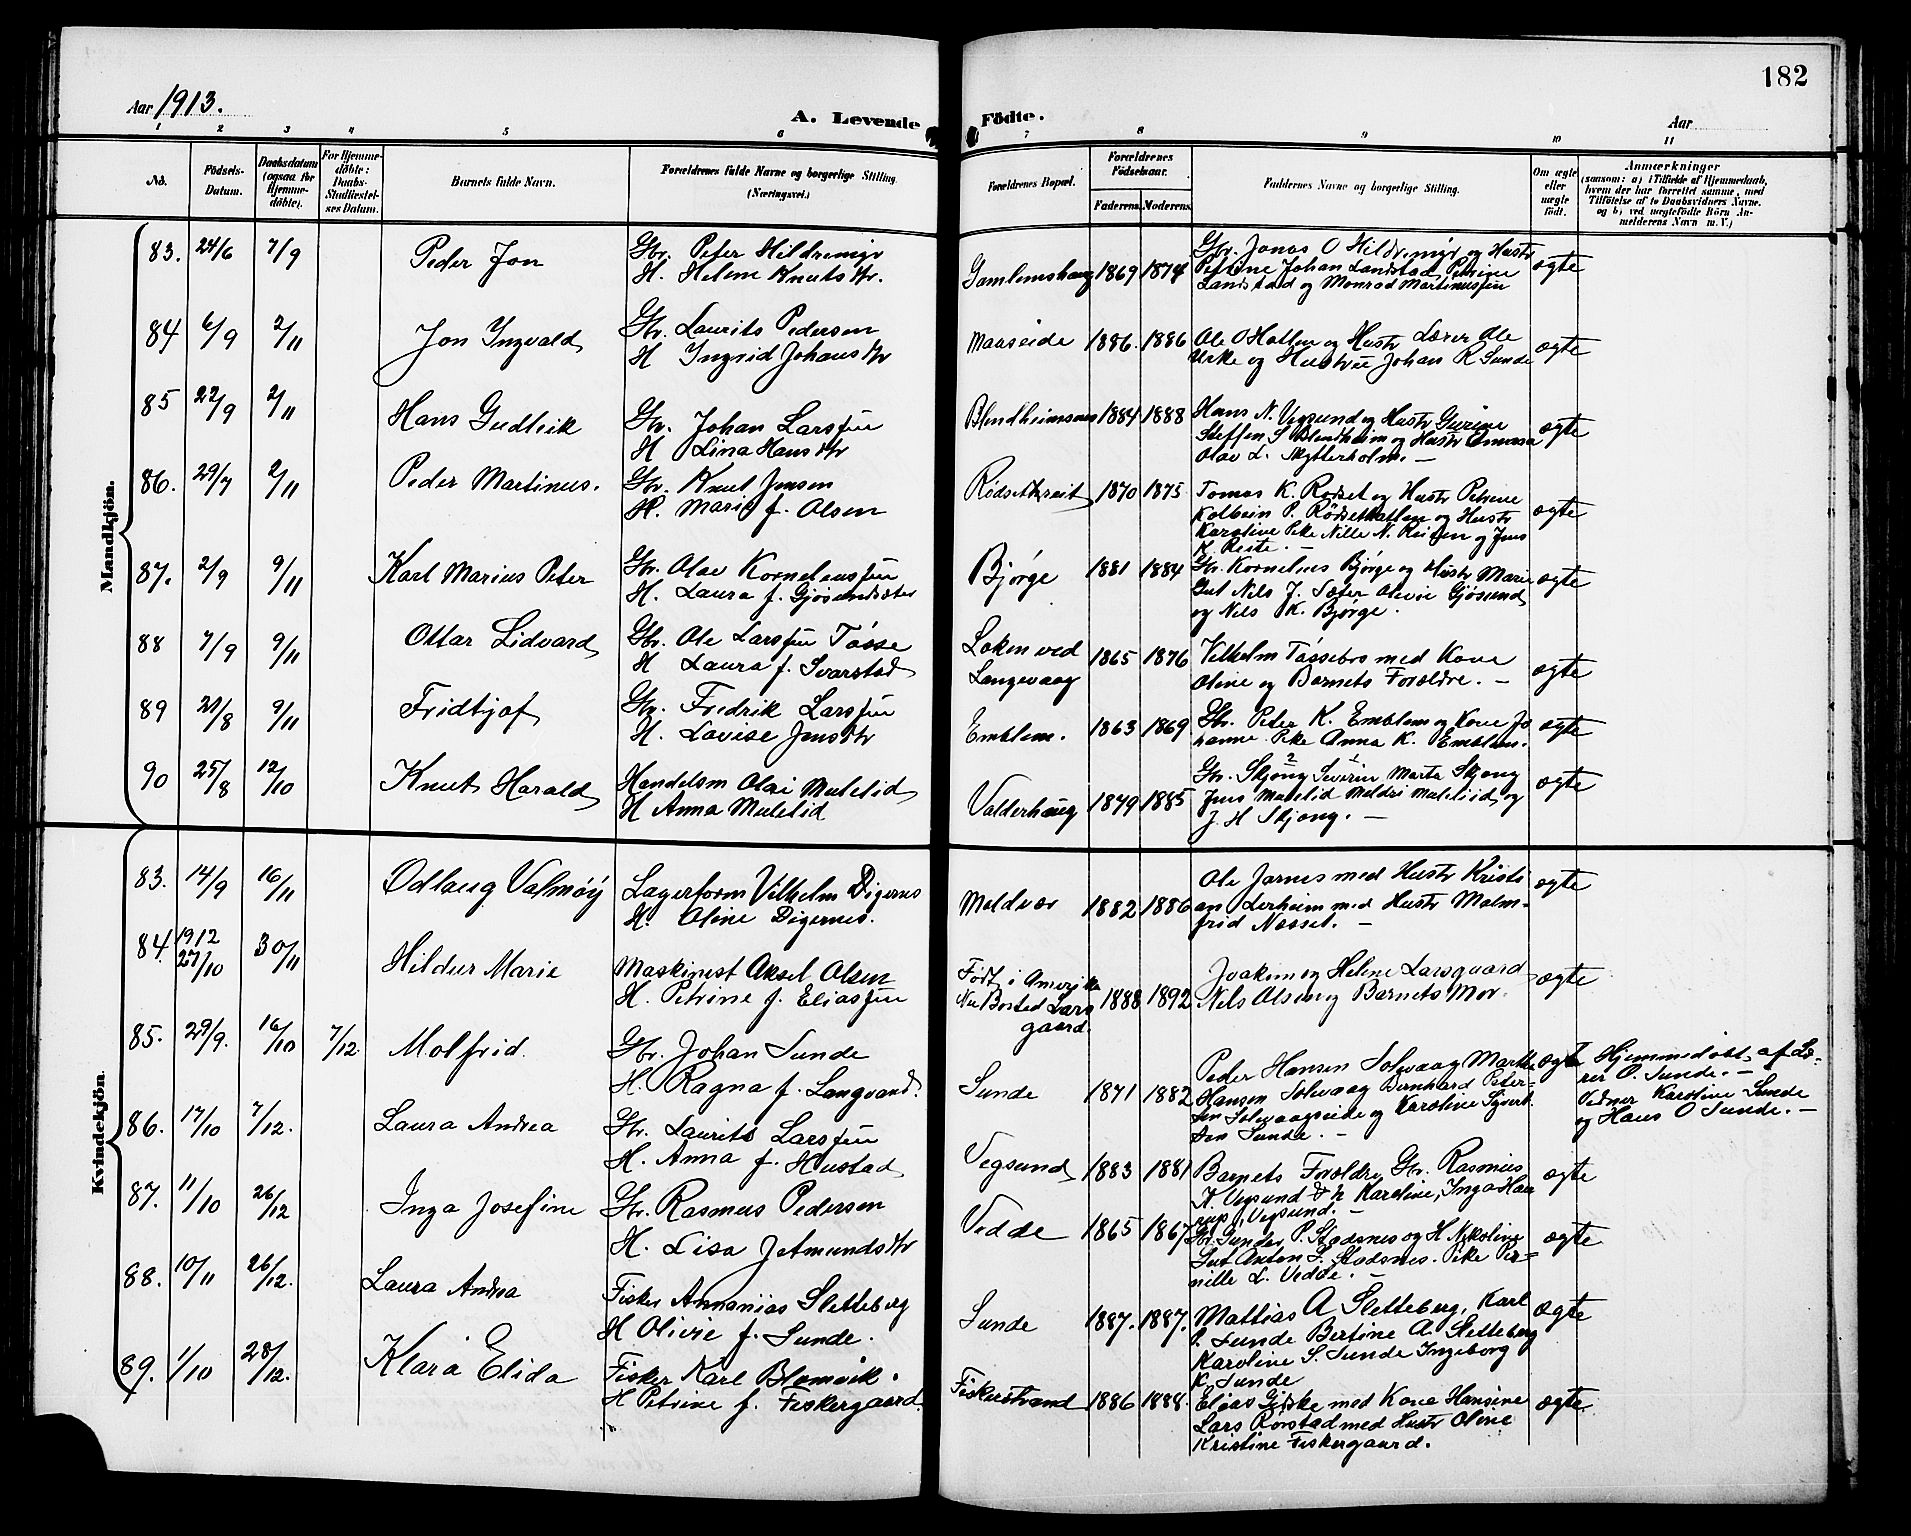 182
Aar 1913.
A. Levende Födte.
Aar
1 2 3 4 5 6 7 8 9 10 11
No.
Födsels-Datum.
Daabsdatum (ogsaa for Hjemmedöbte).
For Hjemmedöbte: Daabs-Stadfæstelses Datum.
Barnets fulde Navn.
Forældrenes fulde Navne og borgerlige Stilling. (Næringsvei.)
Forældrenes Bopæl.
Forældrenes Födselsaar.
Faderens. Moderens.
Faddernes Navne og borgerlige Stilling.
Om ægte eller uægte födt.
Anmærkninger
(saasom: a) i Tilfælde af Hjemmedaab,
hvem der har forrettet samme, med
Tilföielse af to Daabsvidners Navne,
og b) ved uægtefödte Börn An-
melderens Navn m. V.)
Mandkjön.
83. 24/6 7/9 Peder Jon
Gbr. Peter Hildremyr
H. Helene Knutsdtr.
Gamlemshaug 1869 1874
Gbr. Jonas O Hildremyr og Hustr
Petrine Johan Landstad Petrine
Landstad og Monrad Martinussen
ægte
84 6/9 2/11 Jon Ingvald
Gbr. Laurits Pedersen
H Ingrid Johansdtr
Maaseide 1886. 1886
Ole O Hatlen og Hustr Lærer Ole
Urke og Hustru Johan R Sunde
ægte
85 22/9 2/11 Hans Gudleik
Gbr. Johan Larssen
H Lina Hansdtr
Blindheimsnes 1884 1888
Hans N. Vegsund og Hustr Gurine
Steffen S Blindheim og Hustr
Olav L. Nytterholm. —
ægte
86. 29/7 2/11 Peder Martinus.
Gbr. Knut Jensen
H. Marie f. Olsen
Rødsettreit 1870 1875
Tomas K. Rødset og Hustr Petrine
Kolbein P. Rødsethatlen og Hustr
Karoline Pike Nille N. og Jens
K. Reite. —
ægte
87. 2/9 9/11 Karl Marius Peter
Gbr. Olav Korneliussen
H. Laura f. Gjøsundsæter
Bjørge 1881 1884
Gbr. Kornelius Bjørge og Hustr Marie
Gut Nils J. Sæter Olivie Gjøsund
og Nils K. Bjørge.
ægte
88 7/9 9/11 Ottar Lidvard
Gbr. Ole Larssen Tøsse
H Laura f. Svarstad
Loken ved
Langevaag
1865 1876
Vilhelm Tøssebro med Kone
Oline og Barnets Forældre. —
ægte
89 21/8 9/11 Fridtjof
Gbr. Fredrik Larssen
H. Lovise Jensdtr
Emblem. 1863 1869
Gbr. Peter K. Emblem og Kone Jo
hanne. Pike Anna K. Emblem.
ægte
90 25/8 12/10 Knut Harald
Handelsm Olai Mulelid
H Anna Mulelid
Valderhaug 1849 1885
Gbr. Skjong Severin Marta Skjong
Jens Mulelid Meldri Mulelid og
J. H Skjong. —
ægte
Kvindekjön.
83. 14/9 16/11 Odlaug Valmøy
Lagerform Vilhelm Digernes
H. Oline Digernes.
Moldvær 1882 1886
Ole Jarnes med Hustr Kristi
an Lerheim med Hustr Malm-
frid Nesset. —
ægte
84. 1912 27/10 30/11 Hildur Marie
Maskinist Aksel Olsen
H. Petrine f. Eliassen
Født i Amerika
Nu Bosted Lars
gaard.
1888 1892
Joakim og Helene Larsgaard
Nils Olsen og Barnets Mor.
ægte
85. 29/9. 16/10 7/12. Molfrid.
Gbr. Johan Sunde
H. Ragna f. Langvand.
Sunde 1871 1882
Peder Hansen Solevaag Marthe
Hansen Solevaag Bernhard Peter-
sen Solevaagseide og Karoline Sivert
sen Sunde. —
ægte
Hjemmedøbt af Læ-
rer O. Sunde. —
Vidner Karoline Sunde
og Hans O Sunde. —
86. 17/10 7/12. Laura Andrea
Gbr. Laurits Larssen
H. Anna f. Hustad
Vegsund 1883 1881
Barnets Forældre, Gbr. Rasmus
K. Vegsund & h Karoline, Inga Han
sen, Vegsund. —
ægte
87. 11/10 26/12 Inga Josefine
Gbr. Rasmus Pedersen
H. Lisa Jetmundsdtr
Vedde 1865 1867
Gbr. Gunder P. Stadsnes og H. Nikoline
Gut Anton S. Stadsnes. Pike Per-
nille L. Vedde. —
ægte
88. 10/11 26/12. Laura Andrea
Fisker Annanias Sletteberg
H Olivie f. Sunde.
Sunde 1887. 1887.
Mattias A Sletteberg, Karl
P. Sunde Bertine A. Sletteberg
Karoline S. Sunde Ingeborg
K. Sunde
ægte
89. 1/10 28/12. Klara Elida
Fisker Karl Blomvik.
H Petrine f. Fiskergaard.
Fiskerstrand 1886 1888.
Elias Giske med Kone Hansine
Lars Rørstad med Hustr Oline
Kristine Fiskergaard.
ægte